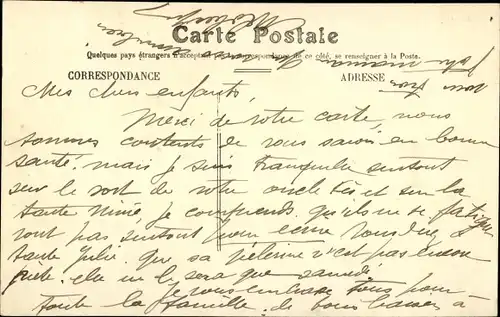 Carte Postale
Quelques pays étrangers n'acceptent pas la correspondance de ce côté, se renseigner à la Poste.
CORRESPONDANCE ADRESSE
Mes chers enfants,
Merci de votre carte, nous
sommes contents de vous savoir en bonne
santé. mais je suis tranquille surtout
sur le sort de votre oncle et sur la
tante je comprends qu'ils ne se fatigue
ront pas surtout pour
tante Julie. que sa pèlerine n'est pas encore
prete. elle ne le sera que samedi.
Je vous embrasse tous pour
toute la famille. de bons baisers à